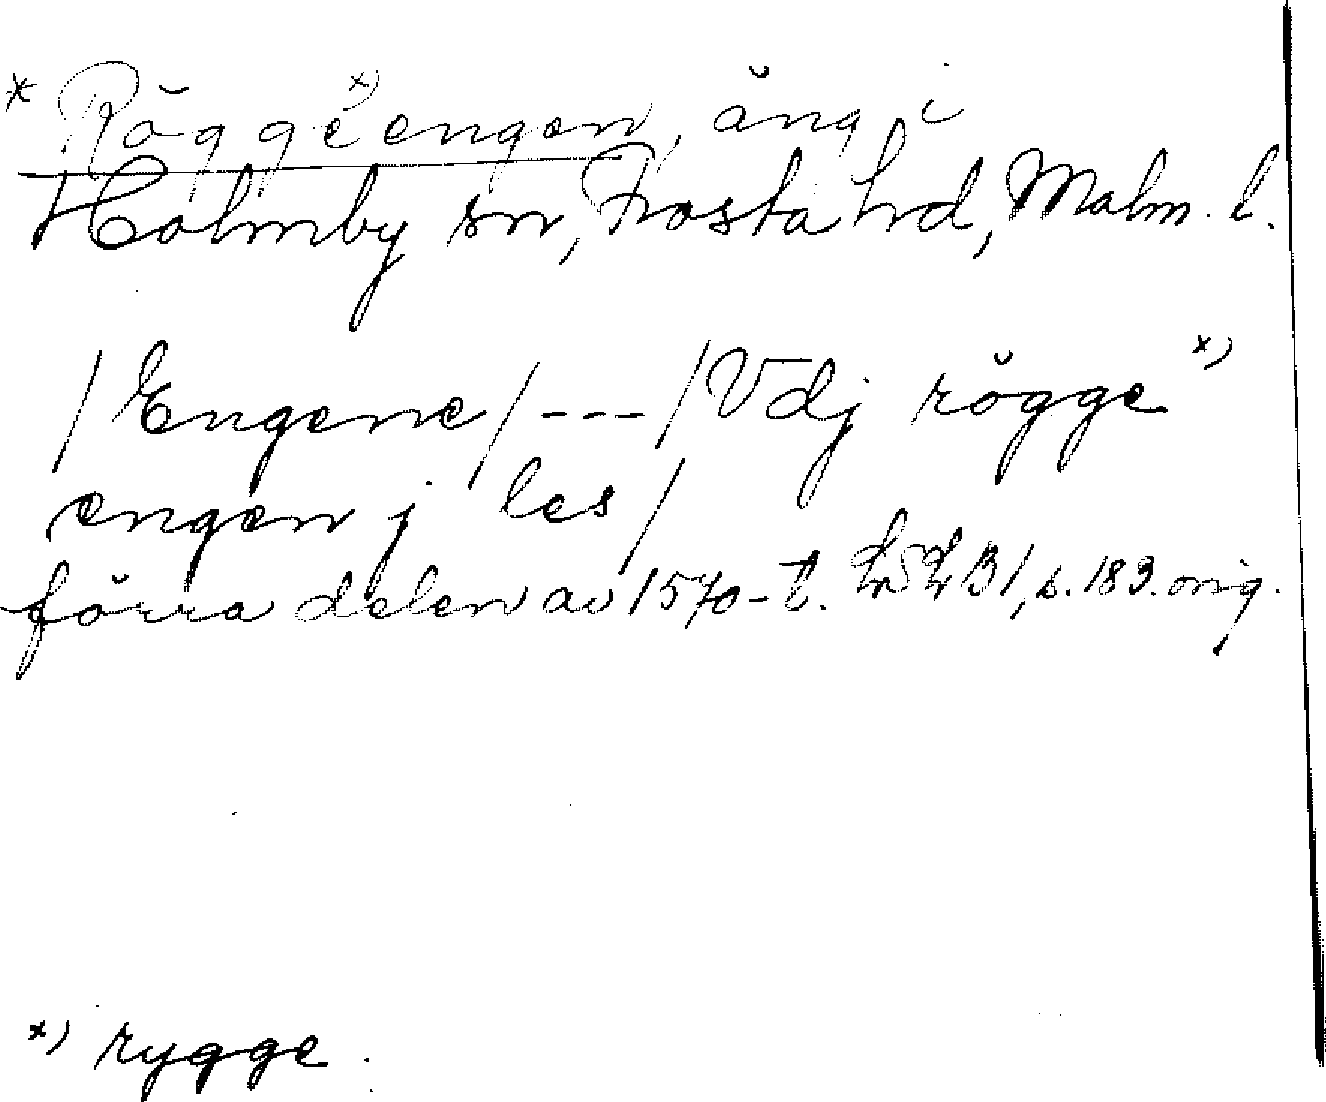 * Röggeˣ⁾engen, äng i
Holmby sn, Frosta hd, Malm. l.
/Engene/---/Vdj röggeˣ⁾
engen j les/
förra delen av 1570-t. LSLB1, s. 183. orig.
ˣ⁾ rygge.